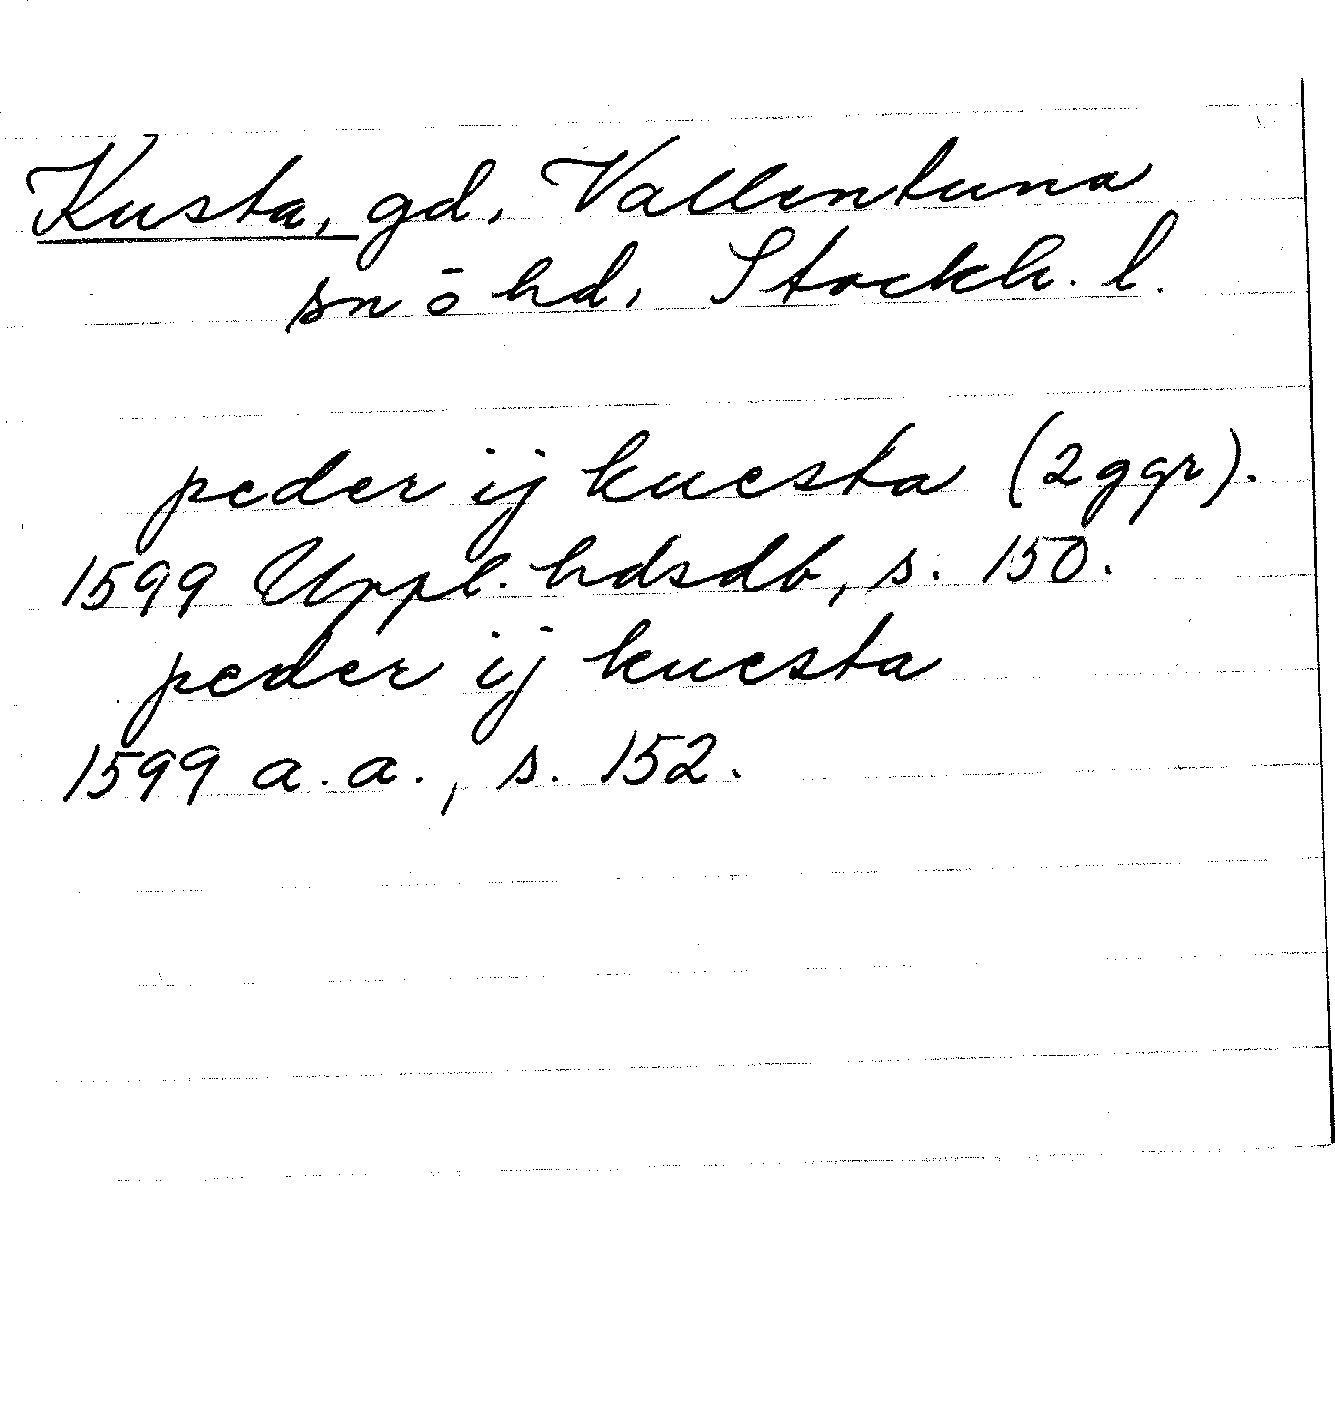 Kusta, gd, Vallentuna
sn o hd, Stockh. l.
peder ij kuesta (2 ggr).
1599 Uppl. hdsdb, s. 150.
peder ij kuesta
1599 a.a., s. 152.